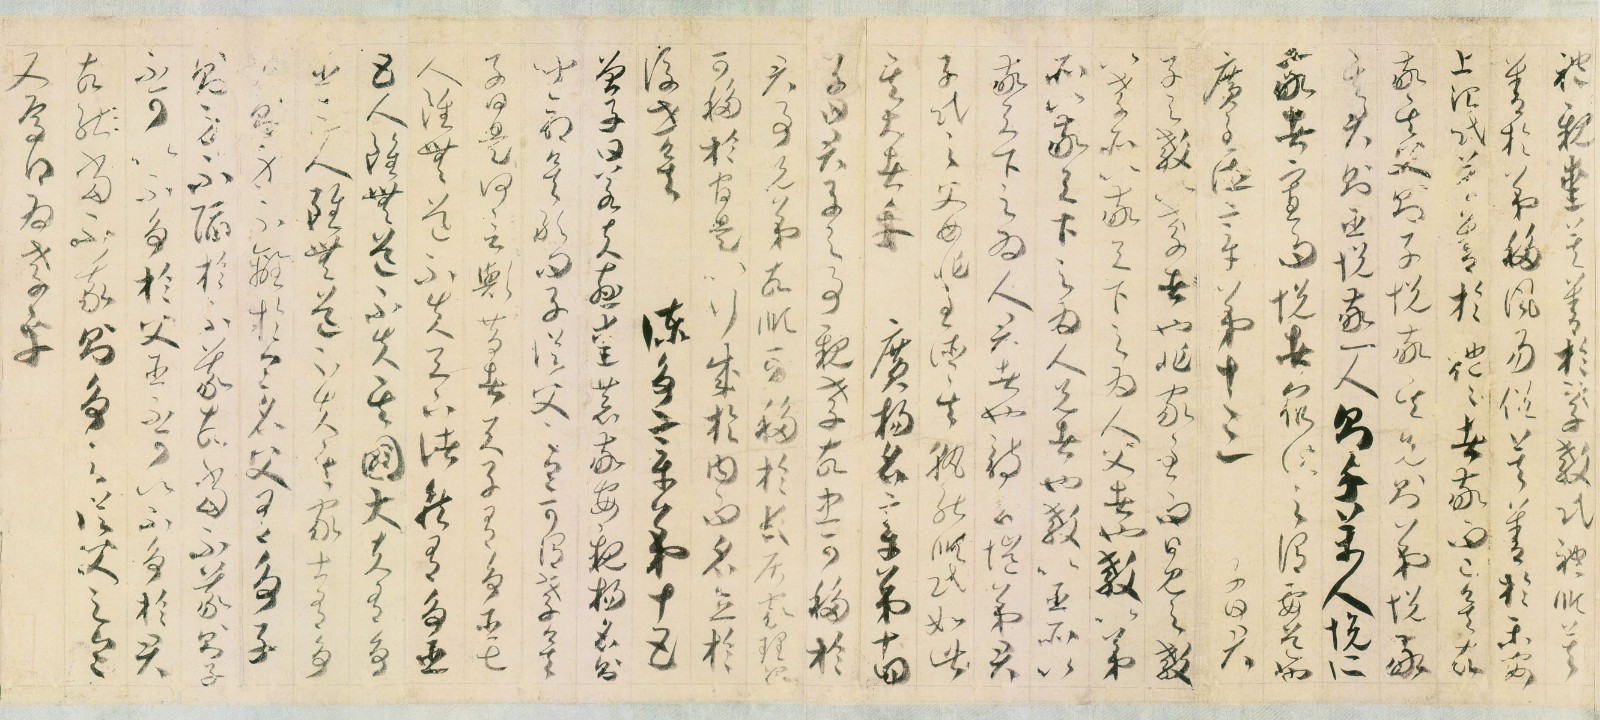 禮親愛莫善於孝教民禮順莫
善於弟移風易俗莫善於樂安
上治民莫善於禮禮者敬而已矣故
敬其父則子悅敬其兄則弟悅敬
其君則臣悅敬一人則千萬人悅所
敬者寡而悅者眾此之謂要道
廣至德章第十三 子曰君
子之教以孝者也非家至而日見之教
以孝所以敬天下之為人父者也教以弟
所以敬天下之為人兄者也教以臣所以
敬天下之為人君者也詩云愷悌君
子民之父母非至德其孰能順民如此
其大者乎 廣揚名章第十四
子曰君子之事親孝故忠可移於
君事兄弟故順可移於長居家理治
可移於官是以行成於內而名立於
後世矣 諫爭章第十五
曾子曰若夫慈愛恭敬安親揚名則
聞命矣敢問子從父之令可謂孝矣
子曰是何言與昔者天子有爭臣七
人雖無道不失天下諸侯有爭臣
五人雖無道不失其國大夫有爭
臣三人雖無道不失其家士有爭
友則身不離於令名父有爭子
則身不陷於不義故當不義則子
不可以不爭於父臣不可以不爭於君
故當不義則爭之從父之令
又焉得為孝乎